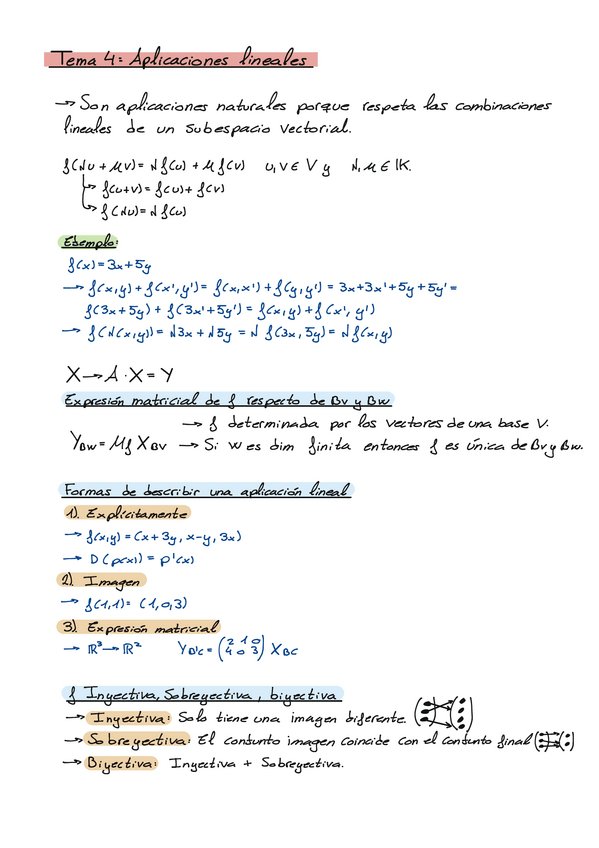 Tema 4: Aplicaciones lineales
→ Son aplicaciones naturales porque respeta las combinaciones
lineales de un subespacio vectorial.
f(λu + μv) = λ f(u) + μ f(v)   u, v ∈ V y   λ, μ ∈ IK.
↳ f(u+v) = f(u) + f(v)
↳ f(λu) = λ f(u)
Ejemplo:
f(x) = 3x + 5y
→ f(x,y) + f(x',y') = f(x,x') + f(y,y') = 3x + 3x' + 5y + 5y' =
f(3x + 5y) + f(3x' + 5y') = f(x,y) + f(x', y')
→ f(λ(x,y)) = λ3x + λ5y = λ f(3x, 5y) = λ f(x,y)
X → A · X = Y
Expresión matricial de f respecto de Bv y Bw
→ f determinada por los vectores de una base V.
Y_Bw = Mf X_Bv → Si W es dim finita entonces f es única de Bv y Bw.
Formas de describir una aplicación lineal
1). Explícitamente
→ f(x,y) = (x + 3y, x - y, 3x)
→ D(p(x)) = p'(x)
2). Imagen
→ f(1,1) = (1,0,3)
3). Expresión matricial
→ IR³ → IR²   Y_B'c = (2 1 0
4 0 3) X_Bc
f Inyectiva, Sobreyectiva, biyectiva
→ Inyectiva: Solo tiene una imagen diferente.
→ Sobreyectiva: El conjunto imagen coincide con el conjunto final
→ Biyectiva: Inyectiva + Sobreyectiva.